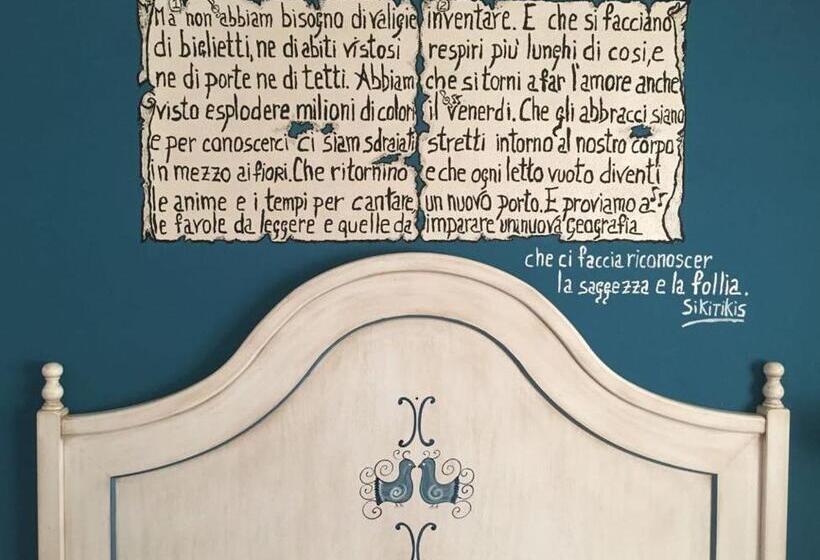 1
Ma non abbiam bisogno di valigie
di biglietti, ne di abiti vistosi
ne di porte ne di tetti. Abbiam
visto esplodere milioni di colori
e per conoscerci ci siam sdraiati
in mezzo ai fiori. Che ritornino
le anime e i tempi per cantare,
le favole da leggere e quelle da
2
inventare. E che si facciano
respiri più lunghi di cosi, e
che si torni a far l'amore anche
il venerdi. Che gli abbracci siano
stretti intorno al nostro corpo
e che ogni letto vuoto diventi
un nuovo porto. E proviamo a
imparare un nuova geografia
che ci faccia riconoscer
la saggezza e la follia.
SIKITIKIS